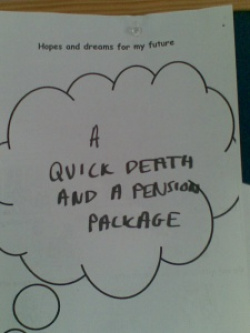 Hopes and dreams for my future
A
QUICK DEATH
AND A PENSION
PACKAGE